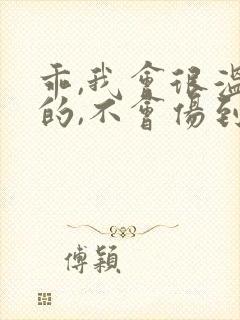 乖,我會很溫
的,不會傷到
傅穎